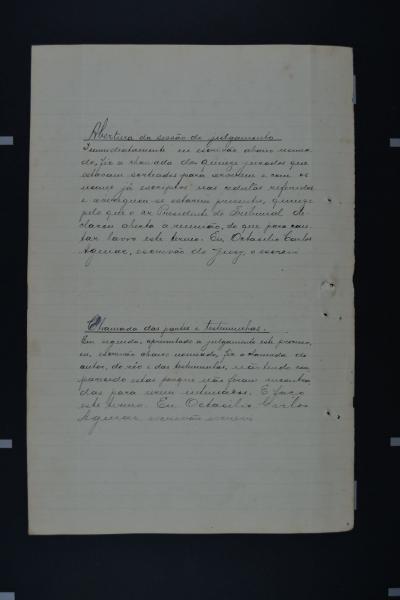 Abertura da sessão de julgamento
Immediatamente eu escrivão abaixo nomea-
do, fiz a chamada dos quinze jurados que
estavam sorteados para servirem e com os
nomes já escriptos nas cedulas referidas
e averiguou-se estarem presentes, quinze
pelo que o sr Presidente do Tribunal de-
clarou aberta a reunião, do que para cons-
tar lavro este termo. Eu, Octacilio Carlos
Aguiar, escrivão do jury, o escrevi
Chamada das partes e testimunhas.
Em seguida, apresentado a julgamento este processo,
eu, escrivão abaixo nomeado, fiz a chamada do
autor, do réo e das testimunhas, não tendo com-
parecido estas porque não foram encontra-
das para serem intimadas. E faço
este termo. Eu Octacilio Carlos
Aguiar, escrivão escrevi